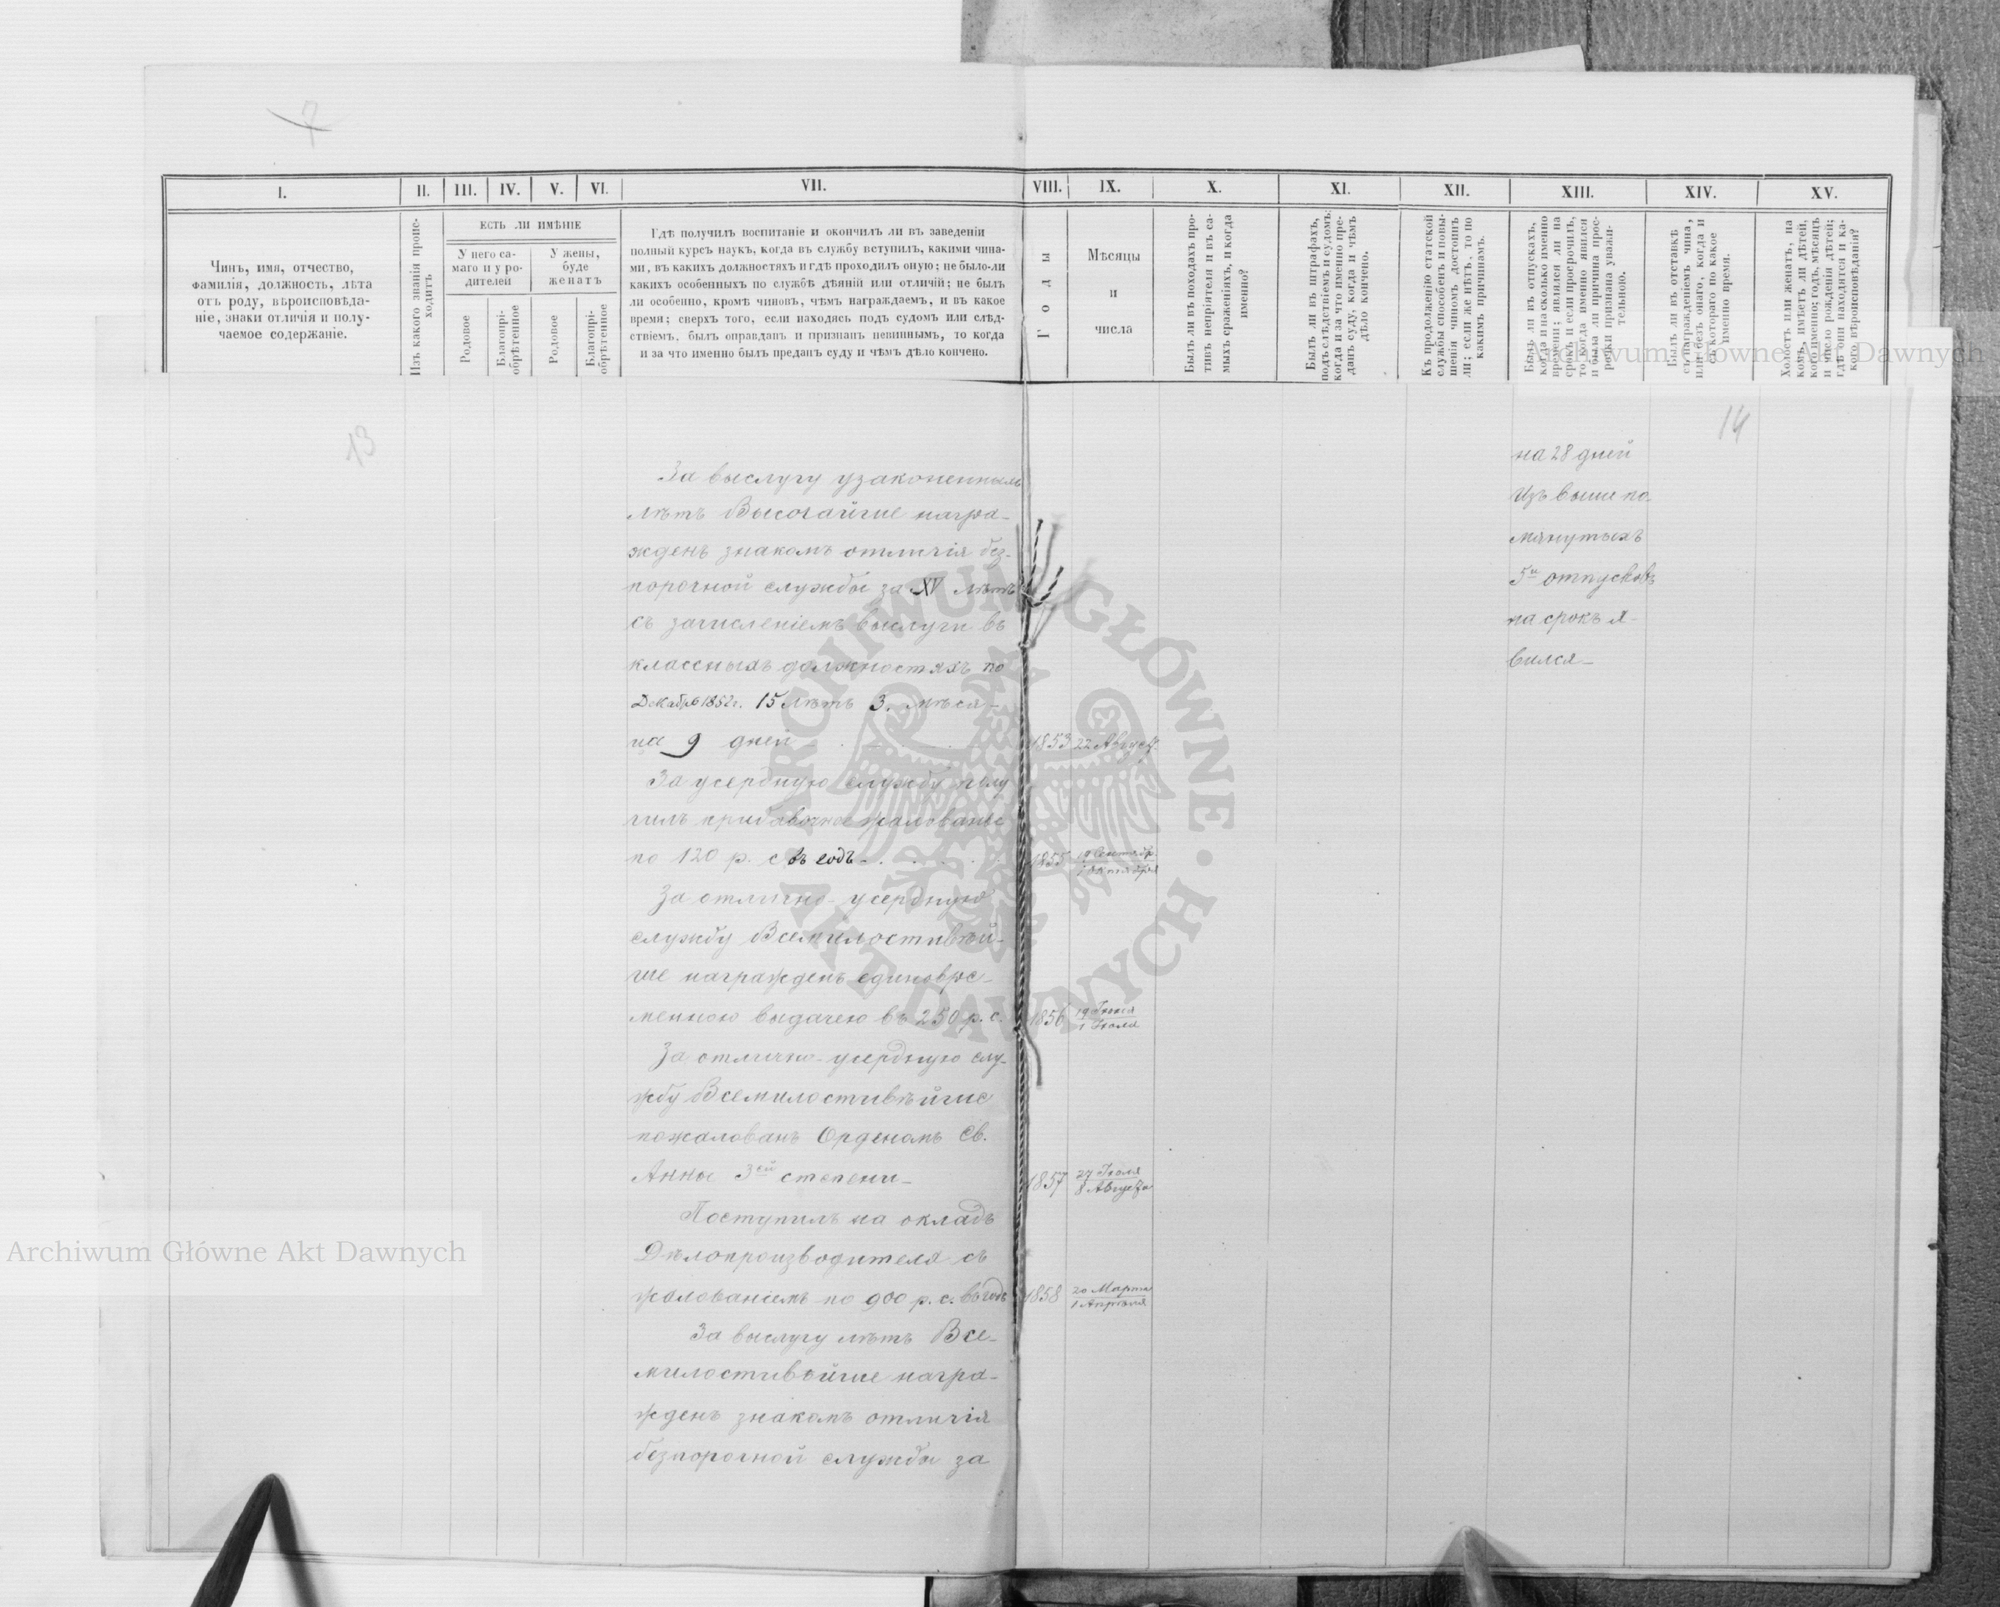 7
I.
II.
III.
IV.
V.
VI.
VII.
VIII.
IX.
X.
XI.
XII.
XIII.
XIV.
XV.
Чинъ, имя, отчество,
фамилія, должность, лѣта
отъ роду, вѣроисповѣда-
ніе, знаки отличія и полу-
чаемое содержаніе.
Изъ какого званія проис-
ходитъ
ЕСТЬ ЛИ ИМѢНІЕ
У него са-
маго и у ро-
дителей
У жены,
буде
женатъ
Родовое
Благопрі-
обрѣтенное
Родовое
Благопрі-
обрѣтенное
Гдѣ получилъ воспитаніе и окончилъ ли въ заведеніи
полный курсъ наукъ, когда въ службу вступилъ, какими чина-
ми, въ какихъ должностяхъ и гдѣ проходилъ оную; не было-ли
какихъ особенныхъ по службѣ дѣяній или отличій; не былъ
ли особенно, кромѣ чиновъ, чѣмъ награждаемъ, и въ какое
время; сверхъ того, если находясь подъ судомъ или слѣд-
ствіемъ, былъ оправданъ и признанъ невиннымъ, то когда
и за что именно былъ преданъ суду и чѣмъ дѣло кончено.
Годы
Мѣсяцы
и
числа
Былъ ли въ походахъ про-
тивъ непріятеля и въ са-
мыхъ сраженіяхъ, и когда
именно?
Былъ ли въ штрафахъ,
подъ слѣдствіемъ и судомъ;
когда и за что именно пре-
данъ суду, когда и чѣмъ
дѣло кончено.
Къ продолженію статской
службы способенъ и повы-
шенія чиномъ достоинъ
ли; если же нѣтъ, то по
какимъ причинамъ.
Былъ ли въ отпускахъ,
когда и на сколько именно
времени; являлся ли на
срокъ и если просрочилъ,
то когда именно явился
и была ли причина прос-
рочки признана уважи-
тельною.
Былъ ли въ отставкѣ
съ награжденіемъ чина,
или безъ онаго, когда и
съ котораго по какое
именно время.
Холостъ или женатъ, на
комъ, имѣетъ ли дѣтей,
кого именно; годъ, мѣсяцъ
и число рожденія дѣтей;
гдѣ они находятся и ка-
кого вѣроисповѣданія?
13
14
За выслугу узаконенныхъ
лѣтъ Высочайше награ-
жденъ знакомъ отличія без-
порочной службы за XV лѣтъ
съ зачисленіемъ выслуги въ
классныхъ должностяхъ по
Декабрь 1852 г. 15 лѣтъ 3. мѣся-
ца 9 дней
1853 22 Август.
За усердную службу полу
чилъ прибавочное жалованье
по 120 р. с въ годъ
1855 19 Сентябр.
1 Октября
За отлично-усердную
службу Всемилостивѣй-
ше награжденъ единовре-
менною выдачею въ 250 р. с.
1856 19 Іюня
1 Іюля
За отлично-усердную слу-
жбу Всемилостивѣйше
пожалованъ Орденомъ Св.
Анны 3ей степени
1857 27 Іюля
8 Августа
Поступилъ на окладъ
Дѣлопроизводителя съ
жалованіемъ по 900 р. с. въ годъ
1858 20 Марта
1 Апрѣля
За выслугу лѣтъ Все-
милостивѣйше награ-
жденъ знакомъ отличія
безпорочной службы за
на 28 дней
Изъ выше по
мянутыхъ
5и отпусковъ
на срокъ я-
вился
Archiwum Główne Akt Dawnych
Archiwum Główne Akt Dawnych
ARCHIWUM GŁÓWNE • AKT DAWNYCH •